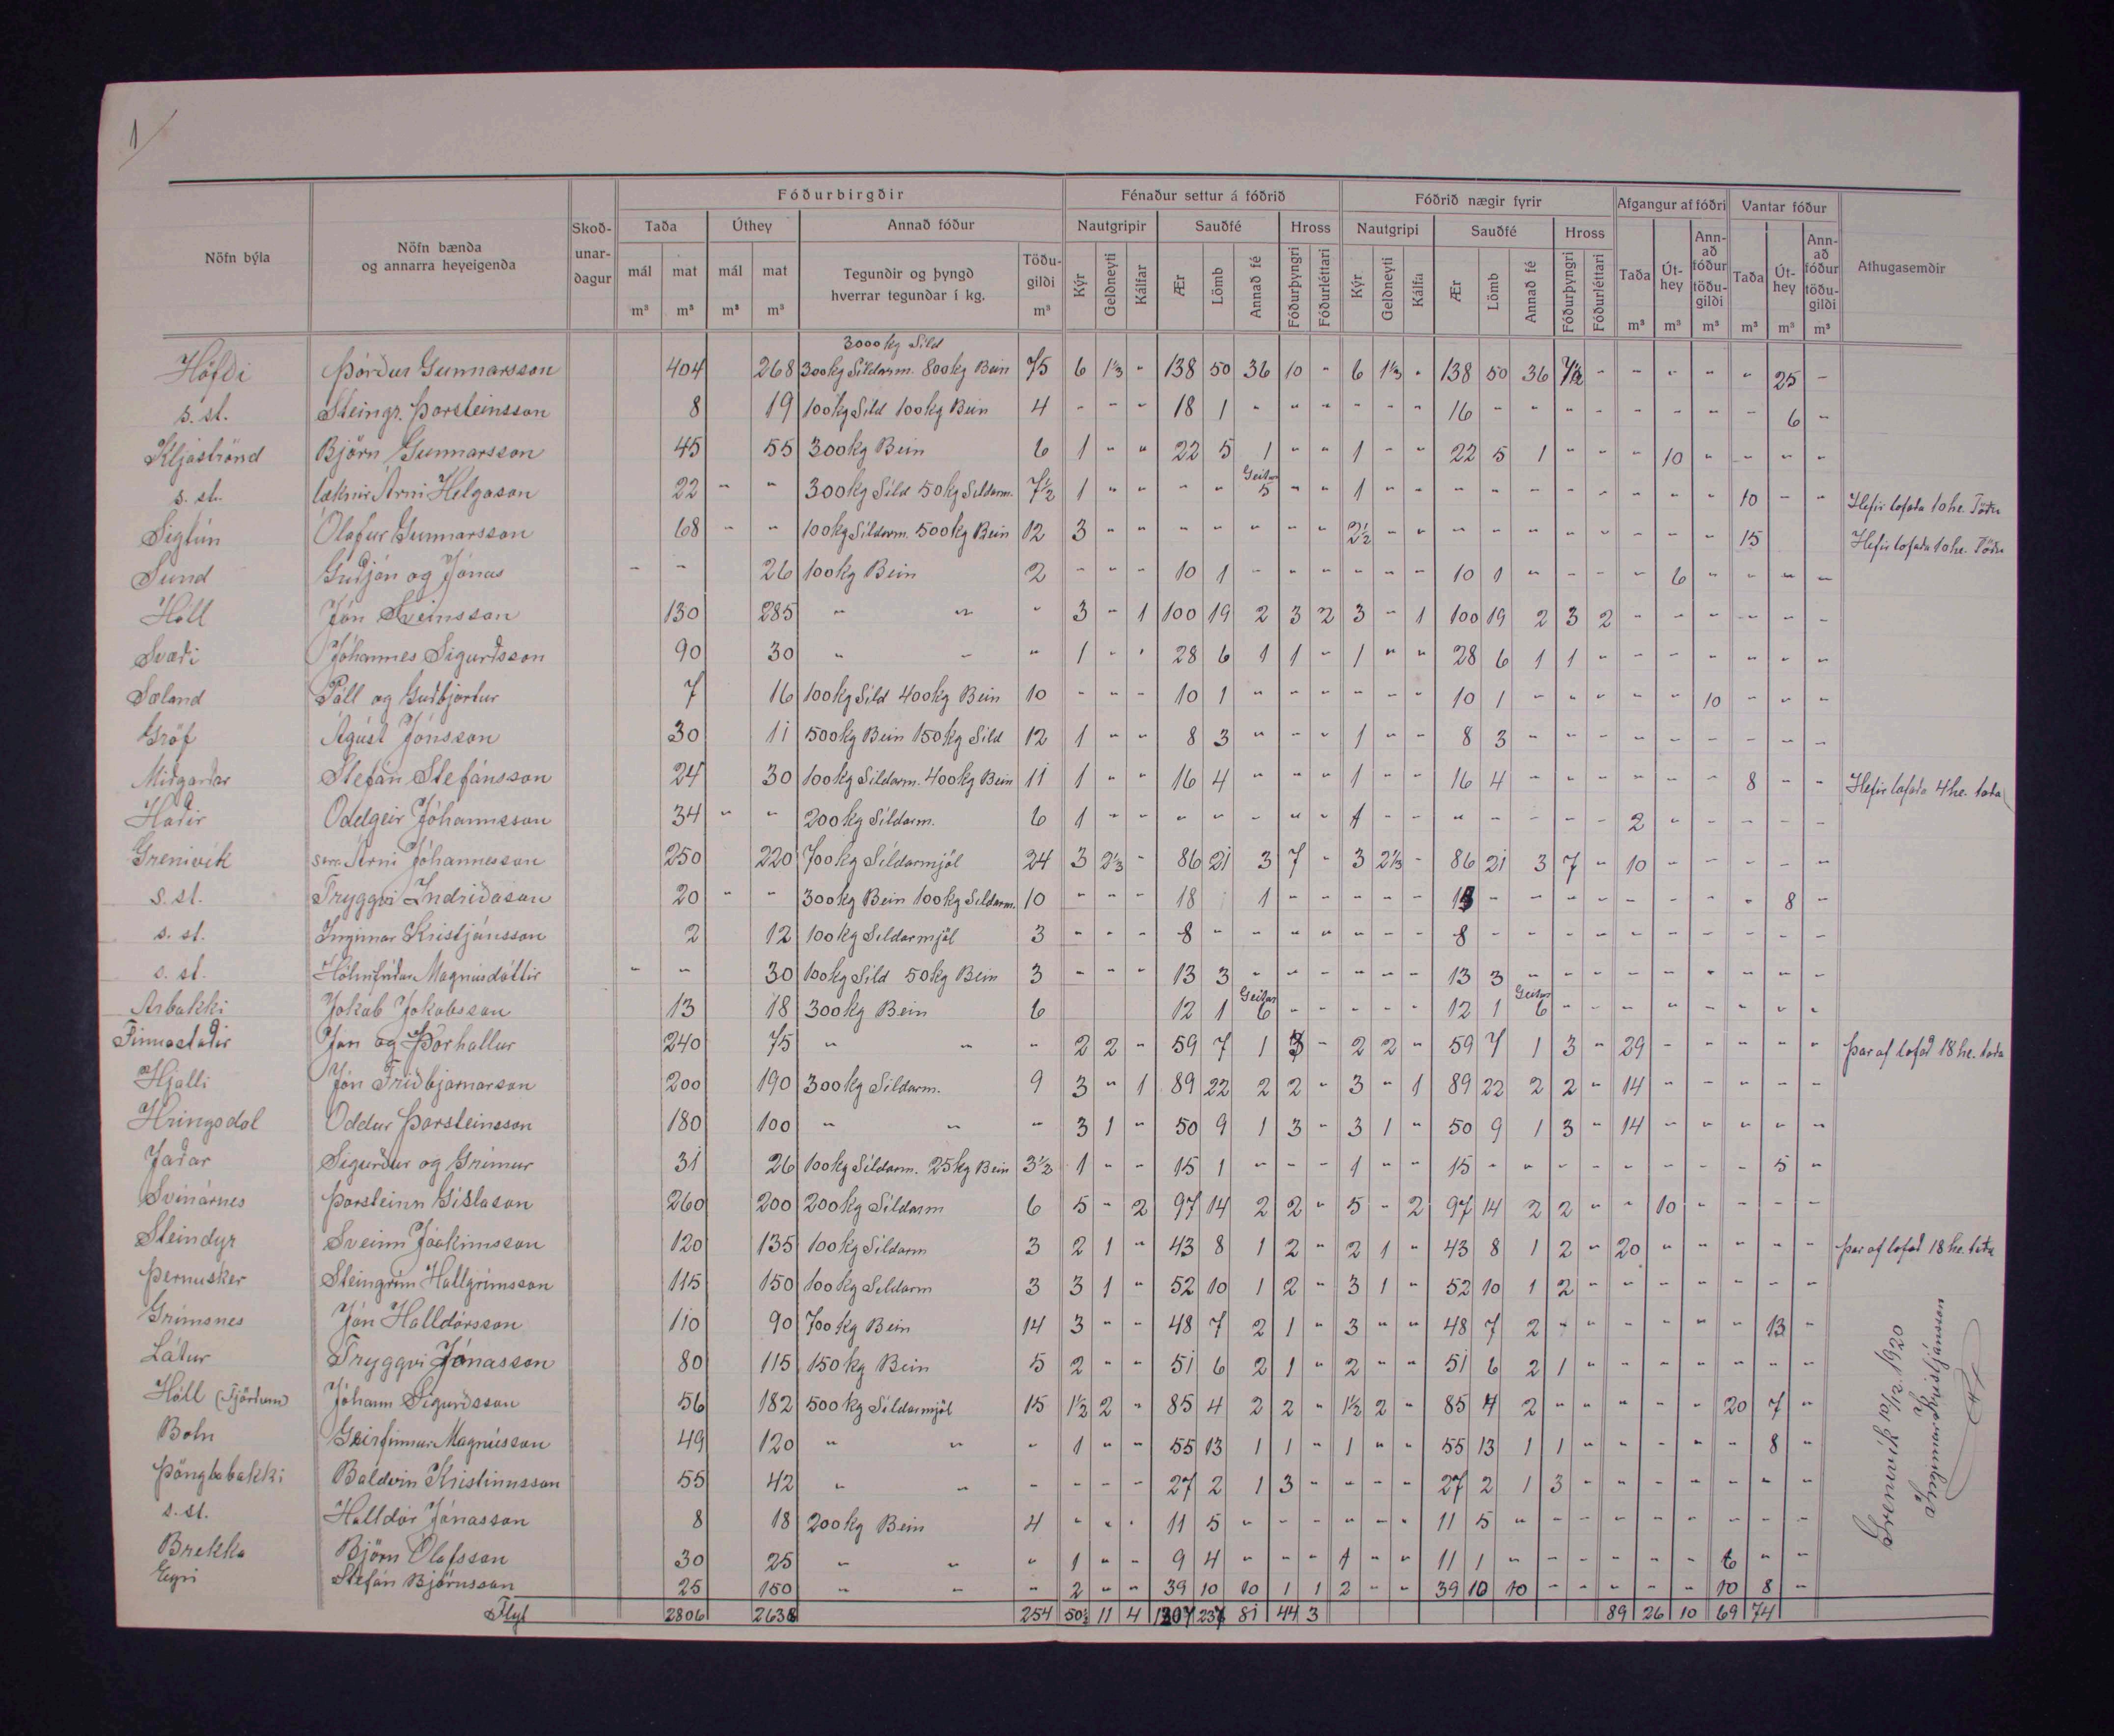 1
Nöfn býla
Nöfn bænda og annarra heyeigenda
Skoðunardagur
Fóðurbirgðir
Fénaður settur á fóðrið
Fóðrið nægir fyrir
Afgangur af fóðri
Vantar fóður
Athugasemdir
Taða Úthey Annað fóður
Nautgripir Sauðfé Hross Nautgripi Sauðfé Hross
mál m³ mat m³ mál m³ mat m³ Tegundir og þyngð hverrar tegundar í kg. Töðugildi m³
Kýr Geldneyti Kálfar Ær Lömb Annað fé Fóðurþyngri Fóðurléttari
Kýr Geldneyti Kálfa Ær Lömb Annað fé Fóðurþyngri Fóðurléttari
Taða m³ Úthey m³ Annað fóður töðugildi m³ Taða m³ Úthey m³ Annað fóður töðugildi m³
3000 kg Síld
Höfði Þórður Gunnarsson 404 268 300kg Síldarm. 800kg Bein 75 6 1⅓ " 138 50 36 10 " 6 1⅓ " 138 50 36 7½ " " " " " 25 "
s. st. Steingr. Þorsteinsson 8 19 100kg Síld 100kg Bein 4 " " " 18 1 " " " " " " 16 " " " " " " " " 6 "
Kljáströnd Björn Gunnarsson 45 55 300kg Bein 6 1 " " 22 5 1 " " 1 " " 22 5 1 " " " 10 " " " "
s. st. læknir Árni Helgason 22 " " 300kg Síld 50kg Síldarm. 7½ 1 " " " " Geitur 5 " " 1 " " " " " " " " " " 10 " " Hefir lofaða 10 he. Töðu
Sigtún Ólafur Gunnarsson 68 " " 100kg Síldarm. 500kg Bein 12 3 " " " " " " " 2½ " " " " " " " " " " 15 Hefir lofaða 10 he. Töðu
Sund Guðjón og Jónas " " 26 100kg Bein 2 " " " 10 1 " " " " " " 10 1 " " " " 6 " " " "
Hóll Jón Sveinsson 130 285 " " " 3 " 1 100 19 2 3 2 3 " 1 100 19 2 3 2 " " " " " "
Svæði Jóhannes Sigurðsson 90 30 " " " 1 " " 28 6 1 1 " 1 " " 28 6 1 1 " " " " " " "
Sæland Páll og Guðbjörtur 7 16 100kg Síld 400kg Bein 10 " " " 10 1 " " " " " " 10 1 " " " " " 10 " " "
Gröf Ágúst Jónsson 30 11 500kg Bein 150kg Síld 12 1 " " 8 3 " " " 1 " " 8 3 " " " " " " " " "
Miðgarðar Stefán Stefánsson 24 30 100kg Síldarm. 400kg Bein 11 1 " " 16 4 " " " 1 " " 16 4 " " " " " " 8 " " Hefir lofaða 4 he. taða
Oddgeir Jóhannsson 34 " " 200kg Síldarm. 6 1 " " " " " " " 1 " " " " " " " 2 " " " " "
Grenivík séra Árni Jóhannesson 250 220 700kg Síldarmjöl 24 3 2⅓ " 86 21 3 7 " 3 2⅓ " 86 21 3 7 " 10 " " " " "
s. st. Tryggvi Indriðason 20 " " 300kg Bein 100kg Síldarm. 10 " " " 18 1 " " " " " " " " " " " " " " 8 "
s. st. Ingimar Kristjánsson 2 12 100kg Síldarmjöl 3 " " " 8 " " " " " " " 8 " " " " " " " " " "
s. st. Hólmfríður Magnúsdóttir " " 30 100kg Síld 50kg Bein 3 " " " 13 3 " " " " " " 13 3 " " " " " " " " "
Árbakki Jakob Jakobsson 13 18 300kg Bein 6 12 1 Geitur 6 " " " " " 12 1 Geitur 6 " " " " " " " "
Finnastaðir Jón og Þórhallur 240 75 " " " 2 2 " 59 7 1 3 " 2 2 " 59 7 1 3 " 29 " " " " " Þar af lofað 18 he. taða
Hjalli Jón Friðbjarnarson 200 190 300kg Síldarm. 9 3 " 1 89 22 2 2 " 3 " 1 89 22 2 2 " 14 " " " " "
Hringsdal Oddur Þorsteinsson 180 100 " " " 3 1 " 50 9 1 3 " 3 1 " 50 9 1 3 " 14 " " " " "
Jaðar Sigurður og Grímur 31 26 100kg Síldarm. 25kg Bein 3½ 1 " " 15 1 " " " 1 " " 15 " " " " " " " " 5 "
Svínárnes Þorsteinn Gíslason 260 200 200kg Síldarm 6 5 " 2 97 14 2 2 " 5 " 2 97 14 2 2 " " 10 " " " "
Steindyr Sveinn Jóakimsson 120 135 100kg Síldarm 3 2 1 " 43 8 1 2 " 2 1 " 43 8 1 2 " 20 " " " " " Þar af lofað 18 he. taða
Þernusker Steingrím Hallgrímsson 115 150 100kg Síldarm 3 3 1 " 52 10 1 2 " 3 1 " 52 10 1 2 " " " " " " "
Grímsnes Jón Halldórsson 110 90 700kg Bein 14 3 " " 48 7 2 1 " 3 " " 48 7 2 " " " " " " 13 "
Látur Tryggvi Jónasson 80 115 150kg Bein 5 2 " " 51 6 2 1 " 2 " " 51 6 2 1 " " " " " " "
Hóll (Fjörðum) Jóhann Sigurðsson 56 182 500kg Síldarmjöl 15 1½ 2 " 85 4 2 2 " 1½ 2 " 85 4 2 " " " " " 20 7 "
Botn Geirfinnur Magnússon 49 120 " " " 1 " " 55 13 1 1 " 1 " " 55 13 1 1 " " " " " 8 "
Þönglabakki Baldvin Kristinnsson 55 42 " " " " " " 27 2 1 3 " " " " 27 2 1 3 " " " " " " "
s. st. Halldór Jónasson 8 18 200kg Bein 4 " " " 11 5 " " " " " " 11 5 " " " " " " " " "
Brekka Björn Ólafsson 30 25 " " " 1 " " 9 4 " " " 1 " " 11 1 " " " " " " 6 " "
Eyri Stefán Björnsson 25 150 " " " 2 " " 39 10 10 1 1 2 " " 39 10 10 " " " " " 10 8 "
Flyt 2806 2638 254 50½ 11 4 1307 237 81 44 3 89 26 10 69 74
Grenivík 10/12. 1920
Ingimar Kristjánsson